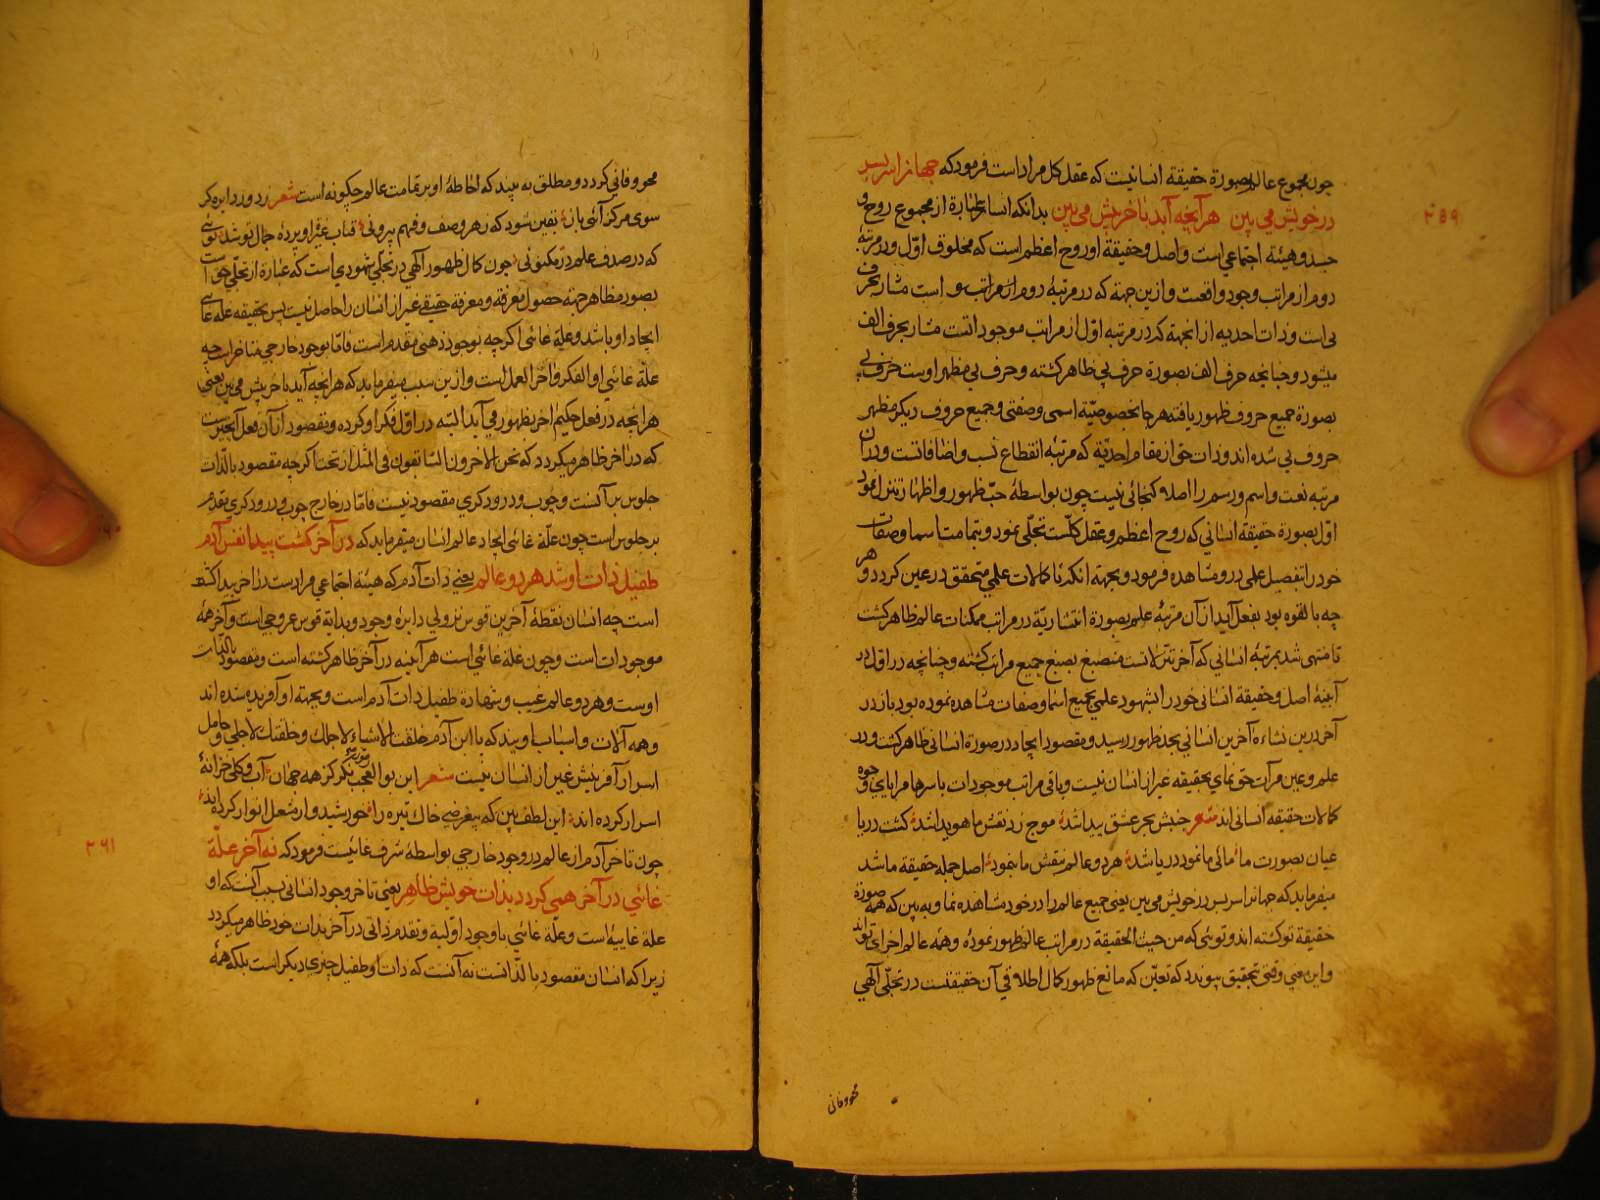 چون مجموع عالم بصورة حقیقة انسانیت که عقل کل مراد است فرمود که جهانرا سربسر
در خویش می بین هر آنچه آید بآخر پیش می بین بدانکه انسان عبارة از مجموع روح و
جسد و هیئة اجتماعی است و اصل و حقیقة او روح اعظم است که مخلوق اول و در مرتبهٔ
دوم از مراتب وجود واقعست و ازین جهة که در مرتبهٔ دوم از مراتب و است مشار بحرف
بی است و ذات احدیه از انجهة که در مرتبه اول از مراتب موجود اتست مشار بحرف الف
میشود و چنانچه حرف الف بصورة حرف بی ظاهر کشته و حرف بی مظهر اوست حرف بی
بصورة جمیع حروف ظهور یافته هر جا بخصوصیّة اسمی و صفتی و جمیع حروف دیکر مظهر
حروف بی شده اند و ذات حق از مقام احدیّة که مرتبهٔ انقطاع نسب و اضافاتست و در آن
مرتبه نعت و اسم و رسم را اصلا کنجائی نیست چون بواسطهٔ حبّ ظهور و اظهار تنزل نمود
اول بصورة حقیقة انسانی که روح اعظم و عقل کلّست تجلّی نمود و بتمامت اسما و صفات
خود را بتفصیل علمی درو مشاهده فرمود و بجهة انکه تا کمالات علمی متحقق در عین کردد و هر
چه بالقوه بود بفعل آید از آن مرتبهٔ علم بصورة انتشاریّة در مراتب ممکنات عالم ظاهر کشت
تا منتهی شد بمرتبهٔ انسانی که آخر تنزلاتست منصبغ بصبغ جمیع مراتب کشته و چنانچه در اول در
آینهٔ اصل و حقیقة انسانی خود را بشهود علمی بجمیع اسما و صفات مشاهده نموده بود باز در
آخر درین نشاءهٔ آخرین انسانی بحد ظهور رسید و مقصود ایجاد در صورة انسانی ظاهر کشت و در
علم و عین مرآت حق نمای بحقیقه غیر از انسان نیست و باقی مراتب موجودات باسرها مرایای وجوه و
کمالات حقیقة انسانی اند شعر جنبش بحر عشق پیدا شد موج زد نقش ما هویدا شد کشت دریا
عیان بصورت ما مائی ما نمود دریا شد هر دو عالم بنقش ما بنمود اصل جمله حقیقة ما شد
میفرماید که جهانرا سربسر در خویش می بین یعنی جمیع عالم را در خود مشاهده نما و به بین که همه صورة
حقیقة تو کشته اند و توئی که من حیث الحقیقة در مراتب عالم ظهور نمودهٔ و همه عالم اجزای تو اند
و این معنی وقتی بتحقیق پیوندد که تعیّن که مانع ظهور کمال اطلاقی آن حقیقتست در تجلّی آلهی
محو و فانی
۲۵۹
محو و فانی کردد و مطلق به بیند که احاطهٔ او بر تمامت عالم چکونه است شعر زد ور دایره کر
سوی مرکز آئی باز یقین شود که زهر وصف و فهم بیرونی نقاب عزّ او پردهٔ جمال تو شد توئی
که در صدف علم درّ مکنونی چون کمال ظهور آلهی در تجلّی شهودی است که عبارة از تجلّی حق است
بصور مظاهر جهة حصول معرفة و معرفة حقیقی غیر از انسان را حاصل نیست پس بحقیقه علة غائی
ایجاد او باشد و علة غائی اکرچه بوجود ذهنی مقدم است فامّا بوجود خارجی متاخر است چه
علّة غائی اول الفکر و آخر العمل است و ازین سبب میفرماید که هر آنچه آید بآخر پیش می بین یعنی
هر آنچه در فعل حکیم آخر بظهور می آید البتّه در اوّل فکر او کرده و مقصود از آن فعل آنچیزست
که در آخر ظاهر میکردد که نحن الآخرون السابقون فی المثل از تخت اکرچه مقصود بالذّات
جلوس بر آنست و چوب و درودکری مقصود نیست فامّا در خارج چوب و درودکری مقدم
بر جلوس است چون علّة غائی ایجاد عالم انسان میفرماید که در آخر کشت پیدا نفس آدم
طفیل ذات او شد هر دو عالم یعنی ذات آدم که هیئة اجتماعی مراد ست در آخر پیدا کشته
است چه انسان نقطهٔ آخرین قوس نزولی دایرهٔ وجود و بدایة قوس عروجی است و آخر همه
موجودات است و چون علّة غائی است هر آینه در آخر ظاهر کشته است و مقصود بالذّات
اوست و هر دو عالم غیب و شهادة طفیل ذات آدم است و بجهة او آفریده شده اند
و همه آلات و اسباب اویند که یا ابن آدم خلقت الاشیاء لاجلک و خلقتک لاجلی و حامل
اسرار آفرینش غیر از انسان نیست شعر این بوالعجب نکر کز همه جهان آب و کلی خزانهٔ
اسرار کرده اند این لطف بین که بیغرضی خاک تیره را خورشید وار مشعل انوار کرده اند
چون تاخر آدم از عالم در وجود خارجی بواسطهٔ شرف غائیست فرمود که نه آخر علّة
غائی در آخر همی کردد بذات خویش ظاهر یعنی تاخر وجود انسانی بسبب آنست که او
علة غاییه است و علّة غائی با وجود اوّلیة و تقدم ذاتی در آخر بذات خود ظاهر میکردد
زیرا که انسان مقصود بالذّاتست نه آنست که ذات او طفیل چیزی دیکر است بلکه همه
۲۶۱